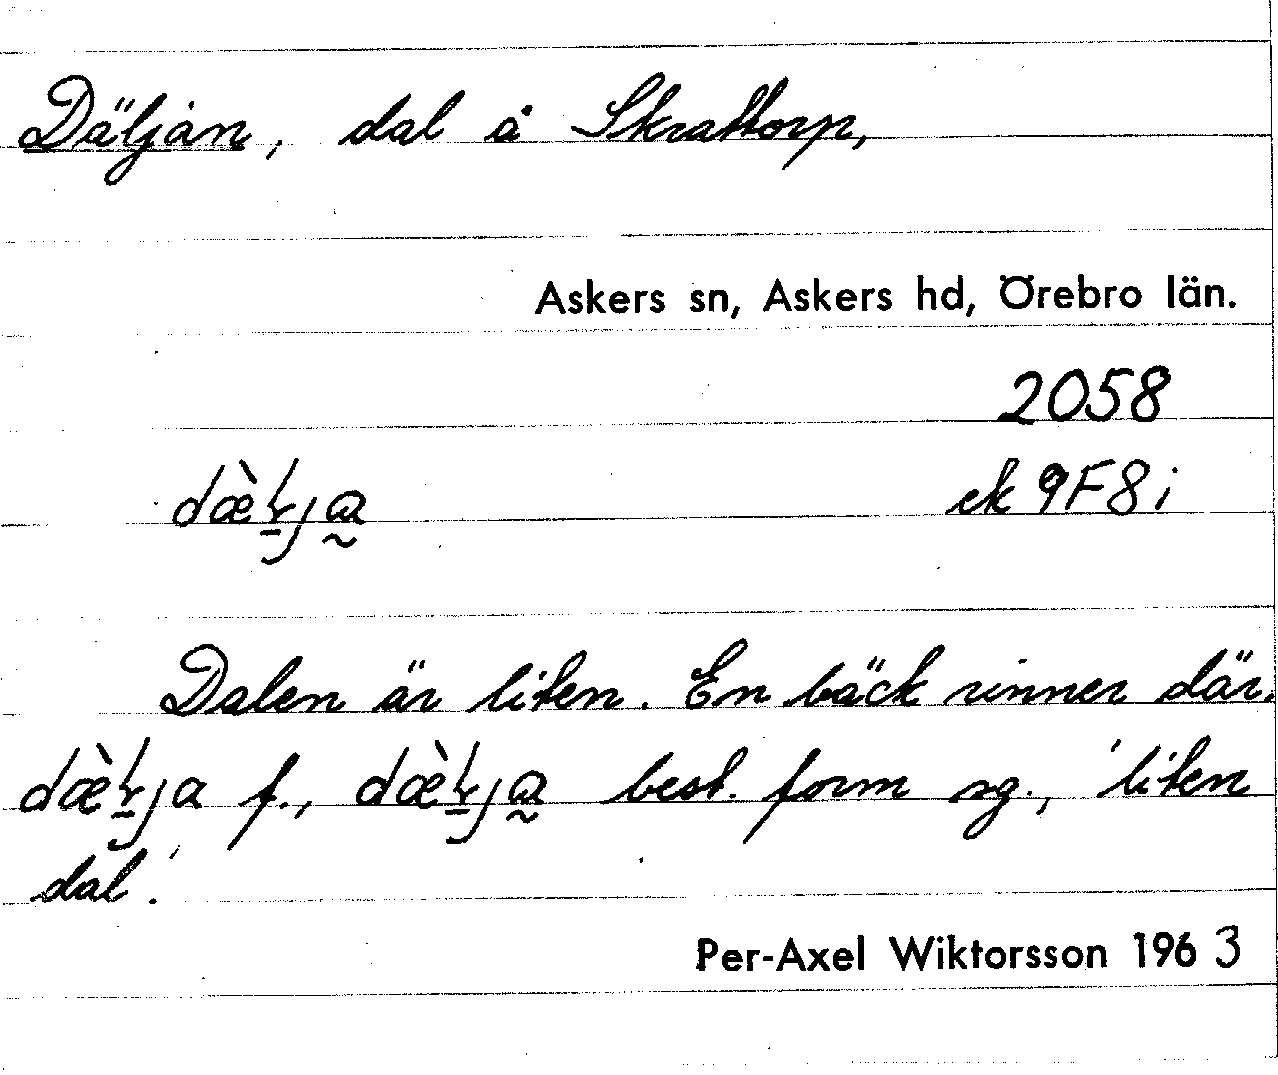 Däljan, dal å Skrattorp,
Askers sn, Askers hd, Örebro län.
2058
ek 9F8i
Dalen är liten. En bäck rinner där.
f., best. form sg., 'liten
dal'.
Per-Axel Wiktorsson 1963